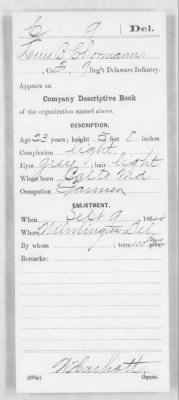 C 9 Del.
Louis B. Chormann
, Co. E, 9 Reg't Delaware Infantry.
Appears on
Company Descriptive Book
of the organization named above.
DESCRIPTION.
Age 23 years; height 5 feet 8 inches.
Complexion light
Eyes grey; hair light
Where born Balto Md
Occupation Farmer
ENLISTMENT.
When Sept 9, 1864
Where Wilmington Del.
By whom ; term 100 days
Remarks:
Copyist.